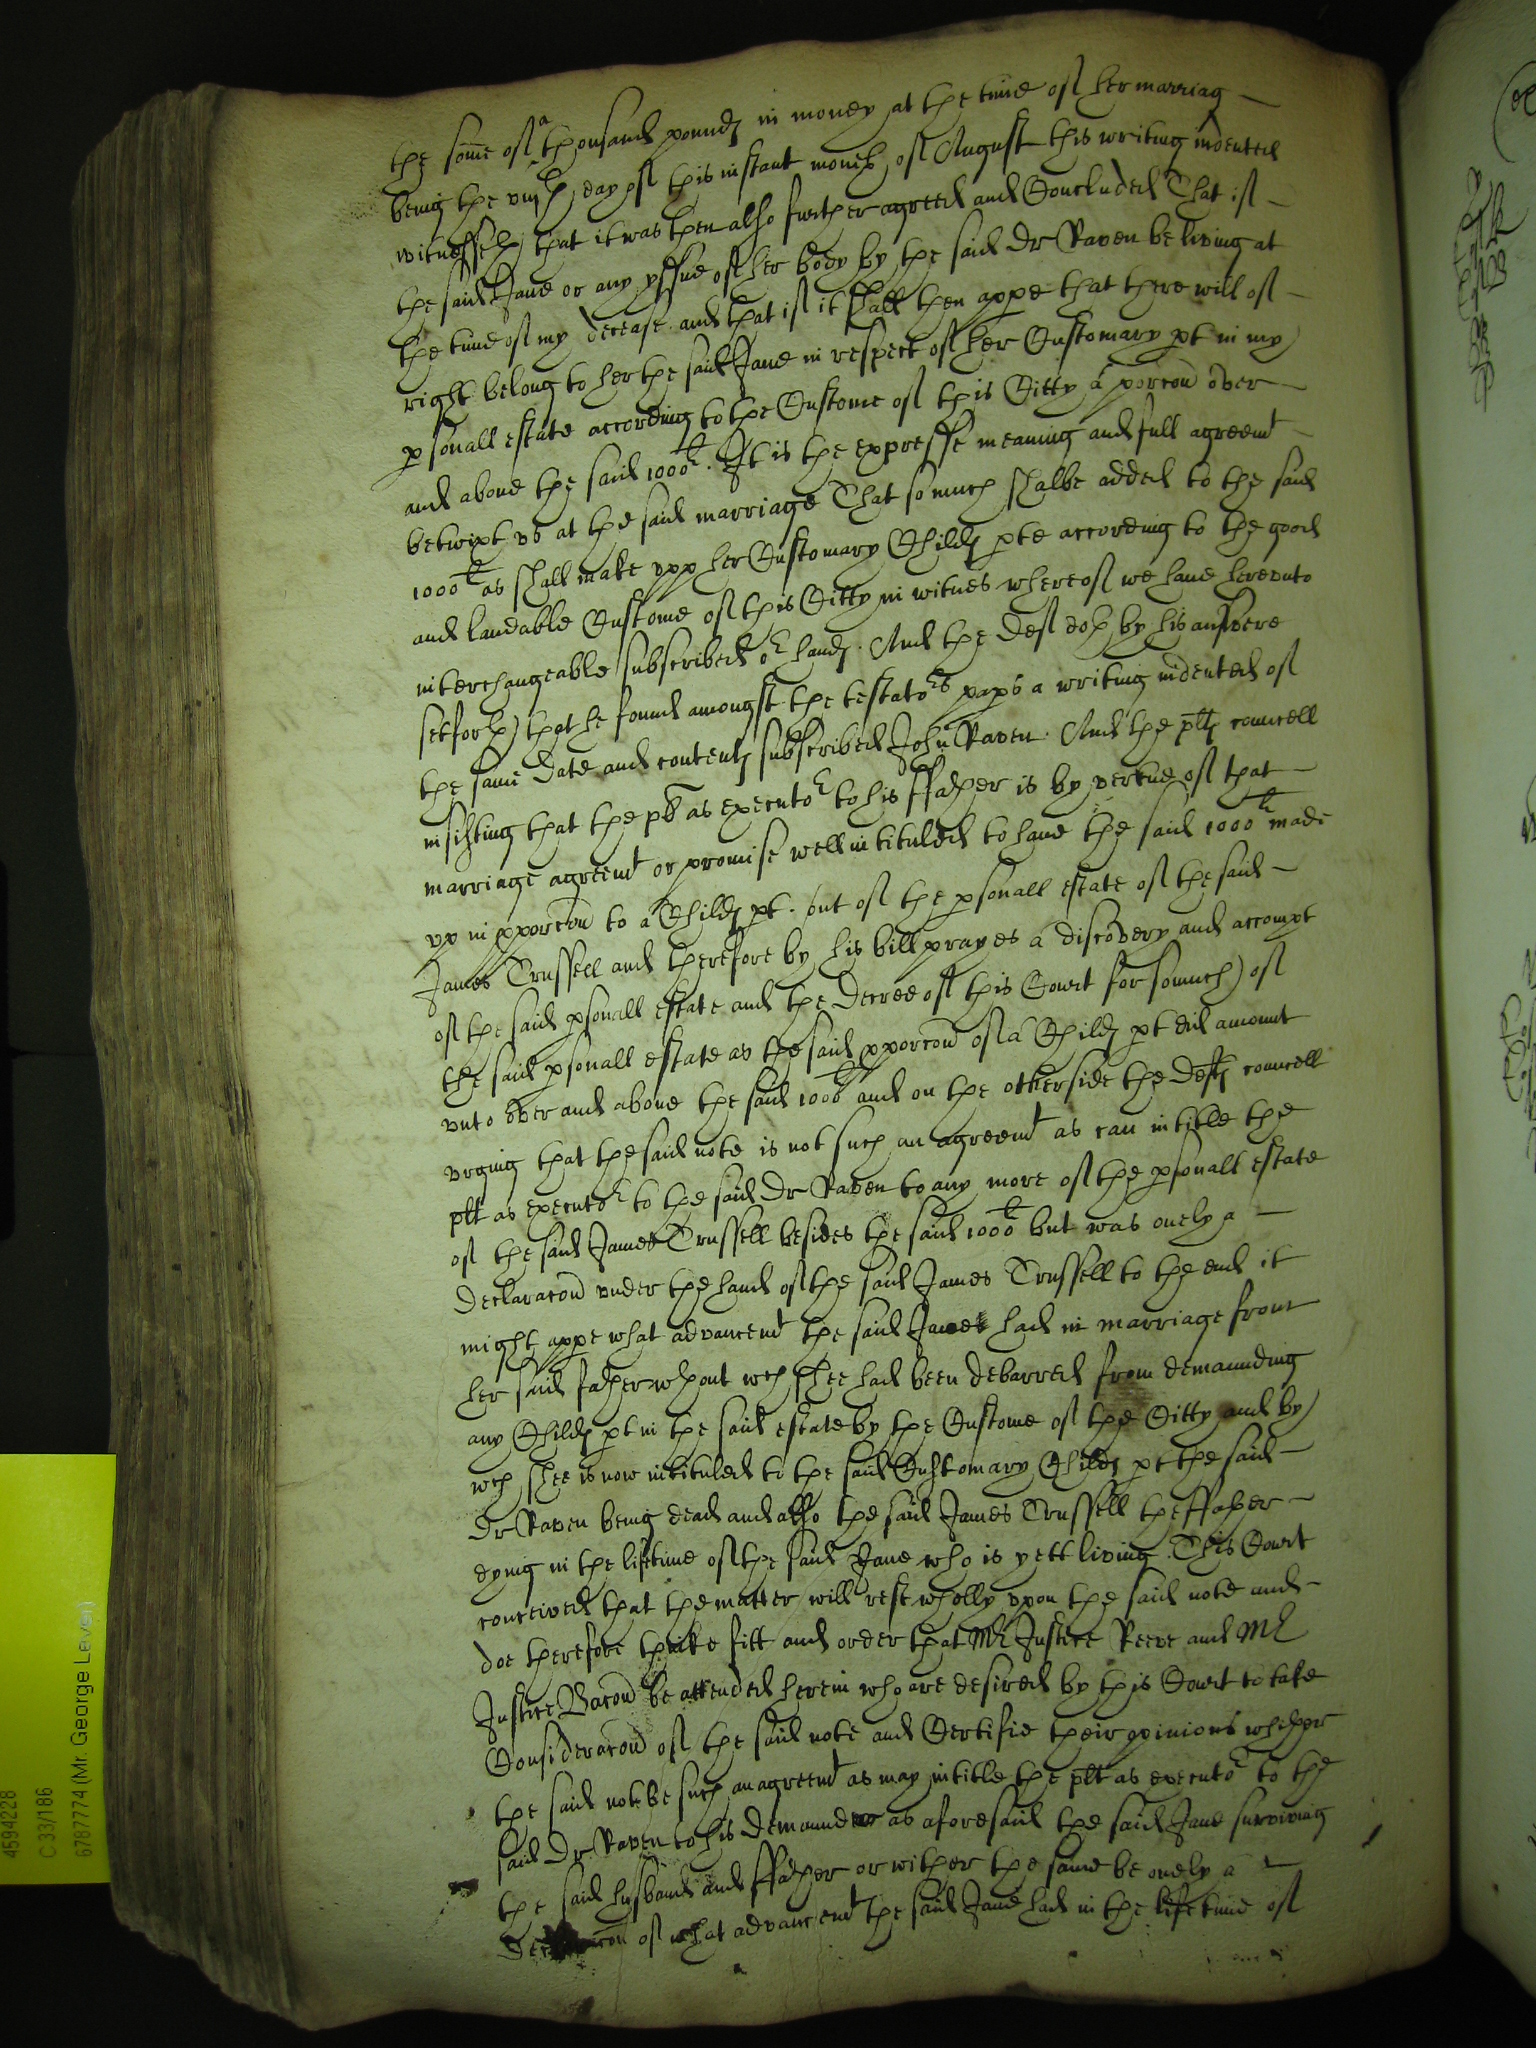 the some of a thousand pounds in money at the time of her marriag
being the viijth day of this instant moneth of August this writing indented
witnesseth that it was then also further agreed and Concluded That if
the said Jane or any yssue of her body by the said Dr Raven be living at
the time of my decease and that if it shall then appe that there will of
right belong to her the said Jane in respect of her Customary pt in my
psonall estate according to the Custome of this Citty a porcon over
and above the said 1000li. It is the expresse meaning and full agreemt
betwixt us at the said marriage That so much shalbe added to the said
1000li as shall make upp her Customary Childs pte according to the good
and laudable Custome of this Citty in witnes whereof we have hereunto
interchangeable subscribed or hands. And the Deft doth by his answere
setforth that he found amongst the testators paprs a writing indented of
the same date and contents subscribed John Raven. And the plts councell
insisting that the plt as executor to his ffather is by vertue of that
marriage agreemt or promise well intituled to have the said 1000li made
up in pporcon to a Childs pt. out of the psonall estate of the said
James Trussell and therefore by his bill prayes a discovery and accompt
of the said psonall estate and the decree of this Court for somuch of
the said psonall estate as the said pporcon of a Childs pt did amount
unto over and above the said 1000li and on the otherside the Defts councell
urging that the said note is not such an agreemt as can intitle the
plt as executor to the said Dr Raven to any more of the psonall estate
of the said James Trussell besides the said 1000li but was onely a
Declaracon under the hand of the said James Trussell to the end it
might appe what advancemt the said Janes had in marriage from
her said father wthout wch shee had been debarred from demaunding
any Childs pt in the said estate by the Custome of the Citty and by
wch shee is now intituled to the said Customary Childs pt the said
Dr Raven being dead and also the said James Trussell the ffather
dying in the lifetime of the said Jane who is yett living. This Court
conceived that the matter will rest wholly upon the said note and
doe therefore thinke fitt and order that Mr Justice Reeve and Mr
Justice Bacon be attended herein who are desired by this Court to take
Consideracon of the said note and Certifie their opinions whether
the said note be such an agreemt as may intitle the plt as executor to the
said Dr Raven to his demaund as aforesaid the said Jane surviving
the said husband and ffather or wither the same be onely a
Declaracon of what advancemt the said Jane had in the lifetime of
4594228
C 33/186
6787774 (Mr. George Leven)